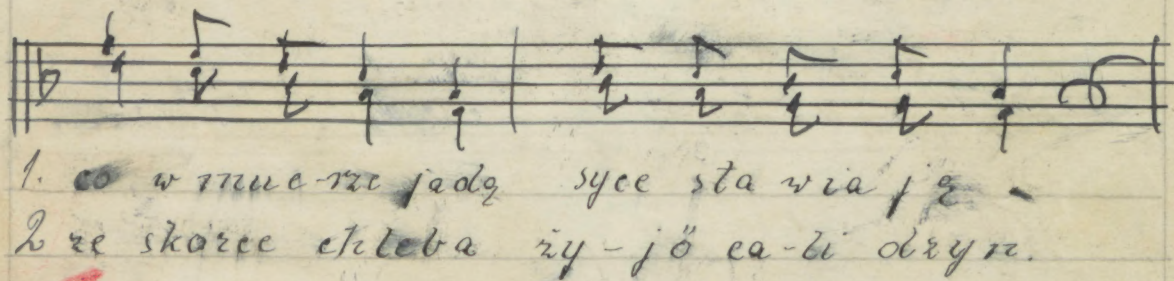 1. co w mue-rze jadą syce sta wia ją
2 ze skorce chleba ży-jö ca-li dzyń.